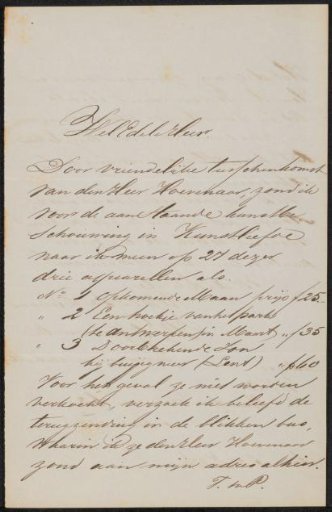 WelEdele Heer
Door vriendelijke tusschenkomst
van den Heer Hoevenaar, zond ik
voor de aanstaande kunstbe-
schouwing in Kunstliefde
naar ik meen op 27 dezer
drie aquarellen als.
No 1 opkomende Maan prijs f 25.
" 2 Een hoekje van het park
te Antwerpen in Maart " f 35
" 3 Doorbrekende Zon
bij (Lent) " f 40
Voor het geval ze niet worden
verkocht, verzoek ik beleefd de
terugzending in de blikken bus,
waarin ik ze den Heer Hoevenaar
zond aan mijn adres alhier.